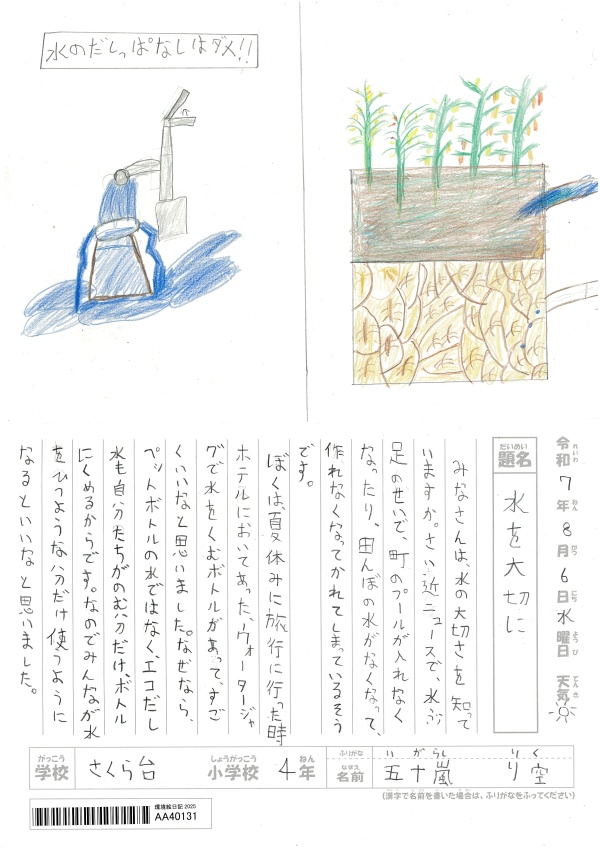 水のだしっぱなしはダメ!!
令和7年8月6日水曜日 天気
れいわ ねん がつ にち ようび てんき
だいめい
題名
水を大切に
みなさんは、水の大切さを知って
いますか。さい近ニュースで、水ぶ
足のせいで、町のプールが入れなく
なったり、田んぼの水がなくなって、
作れなくなってかれてしまっているそう
です。
ぼくは、夏休みに旅行に行った時
ホテルにおいてあった、ウォータージャ
グで水をくむボトルがあって、すご
くいいなと思いました。なぜなら、
ペットボトルの水ではなく、エコだし
水も自分たちがのむ分だけ、ボトル
にくめるからです。なのでみんなが水
をひつような分だけ使うように
なるといいなと思いました。
がっこう
学校
さくら台
しょうがっこう ねん
小学校 4年
ふりがな
いがらし りく
なまえ
名前
五十嵐 り空
(漢字で名前を書いた場合は、ふりがなをふってください)
環境絵日記 2025
AA40131